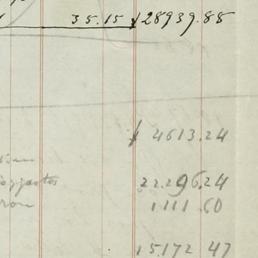 35.15 $28939.88
$ 4613.24
22.296.24
1111 60
15172 47